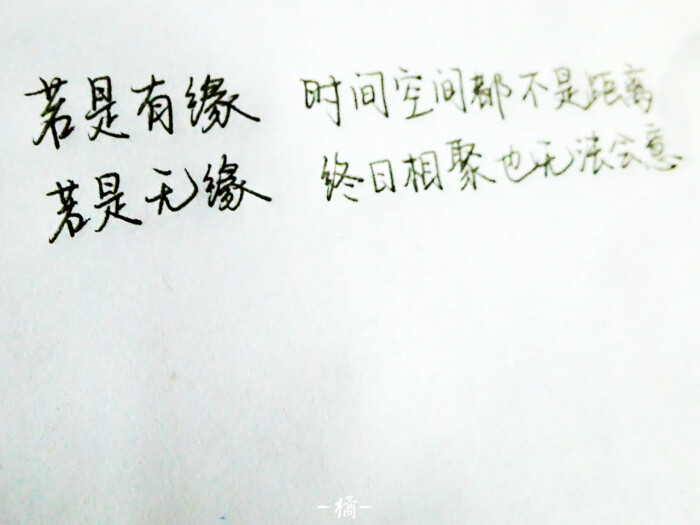 若是有缘 时间空间都不是距离
若是无缘 终日相聚也无法会意
-橘-